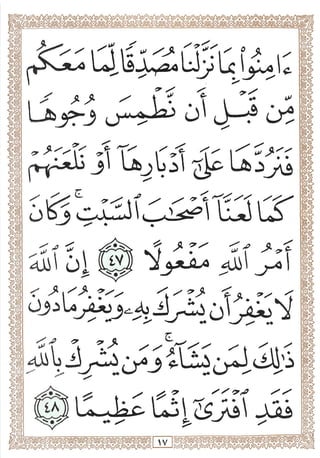 ءَامِنُوا۟ بِمَا نَزَّلْنَا مُصَدِّقًا لِّمَا مَعَكُم
مِّن قَبْلِ أَن نَّطْمِسَ وُجُوهًا
فَنَرُدَّهَا عَلَىٰٓ أَدْبَارِهَآ أَوْ نَلْعَنَهُمْ
كَمَا لَعَنَّآ أَصْحَٰبَ ٱلسَّبْتِ ۚ وَكَانَ
أَمْرُ ٱللَّهِ مَفْعُولًا ٤٧ إِنَّ ٱللَّهَ
لَا يَغْفِرُ أَن يُشْرَكَ بِهِۦ وَيَغْفِرُ مَا دُونَ
ذَٰلِكَ لِمَن يَشَآءُ ۚ وَمَن يُشْرِكْ بِٱللَّهِ
فَقَدِ ٱفْتَرَىٰٓ إِثْمًا عَظِيمًا ٤٨
١٧